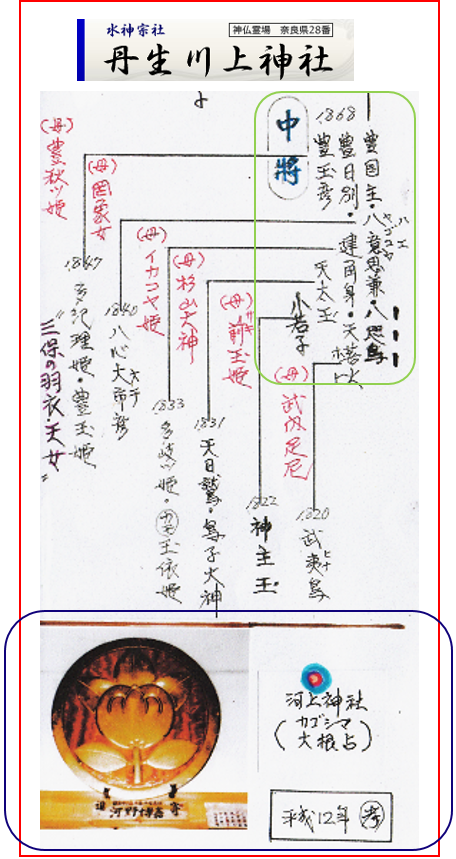 水神宗社
神仏霊場 奈良県28番
丹生川上神社
中將
1868
豊国主・八意思兼・八咫烏
ヤゴコロ
豊日別・建角身・天
豊玉彦
天太玉
小若子
(母)豊秋ツ姫
(母)罔象女
(母)イカコヤ姫
(母)杉山大神
(母)前玉姫
サキ
(母)武伎足尼
1847
多紀理姫・豊玉姫
"三保の羽衣・天女"
1840
八心大市彦
1833
多岐ツ姫・玉依姫
1831
天日鷲・鳥子大神
1822
神主玉
1820
武夷鳥
ヒナ
河上神社
(カゴシマ
大根占)
河野
平成12年 孝